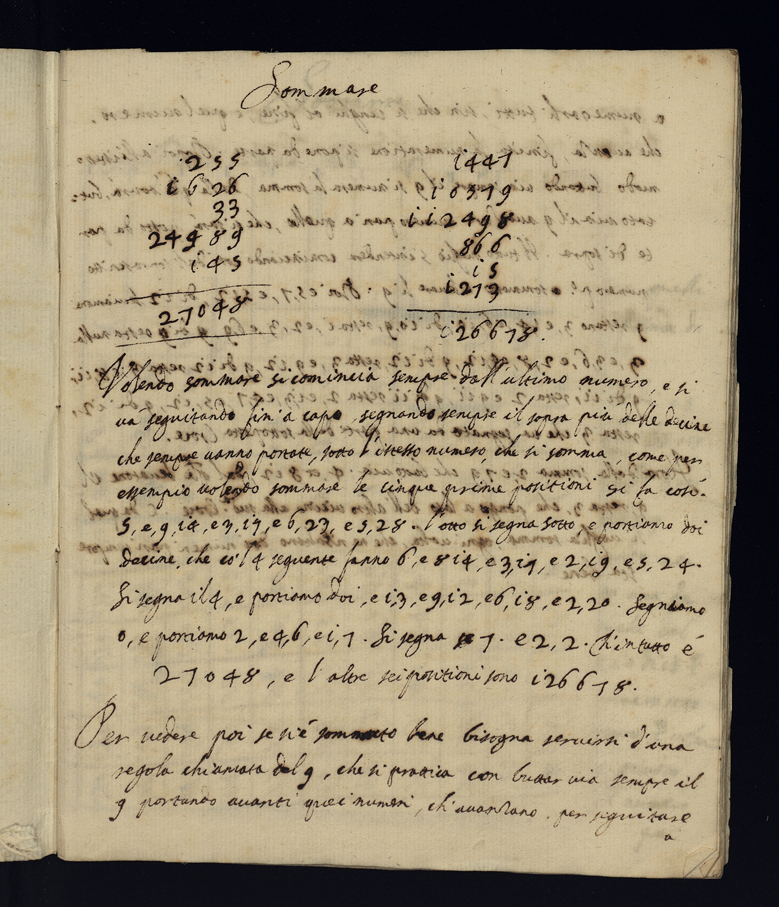 Sommare
255
1626
33
24989
145
27048
1447
10579
112498
866
15
1273
126678.
Volendo sommare si comincia sempre dall'ultimo numero, e si
va seguitando fin'a capo, segnando sempre il sopra più delle decine
che sempre vanno portate, sotto l'istesso numero, che si somma, come per
essempio volendo sommare le cinque prime positioni si fa così.
5, e, 9, 14, e 3, 17, e 6, 23, e 5, 28. l'otto si segna sotto, e portiamo doi
decine, che co'l 4 seguente fanno 6, e 8 14, e 3, 17, e 2, 19, e 5, 24.
Si segna il 4, e portiamo doi, e 1, 3, e 9, 12, e 6, 18, e 2, 20. Segniamo
0, e portiamo 2, e 4, 6, e 1, 7. Si segna 7. e 2, 2. Ch'in tutto é
27048, e l'altre sei positioni sono 126678.
Per vedere poi se si é sommato bene bisogna servirsi d'una
regola chiamata del 9, che si prattica con buttar via sempre il
9 portando avanti quei numeri, ch'avanzano. per seguitare
a